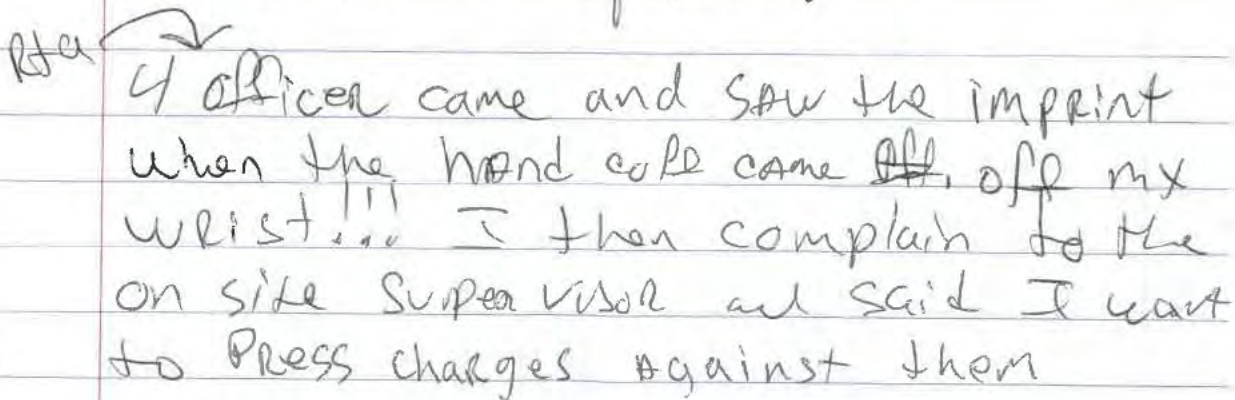 Rta
4 officer came and SAW the imprint
when the hand cuff came off my
WRist!!! I then complain to the
on site Supervisor and said I want
to PRess chaRges Against them